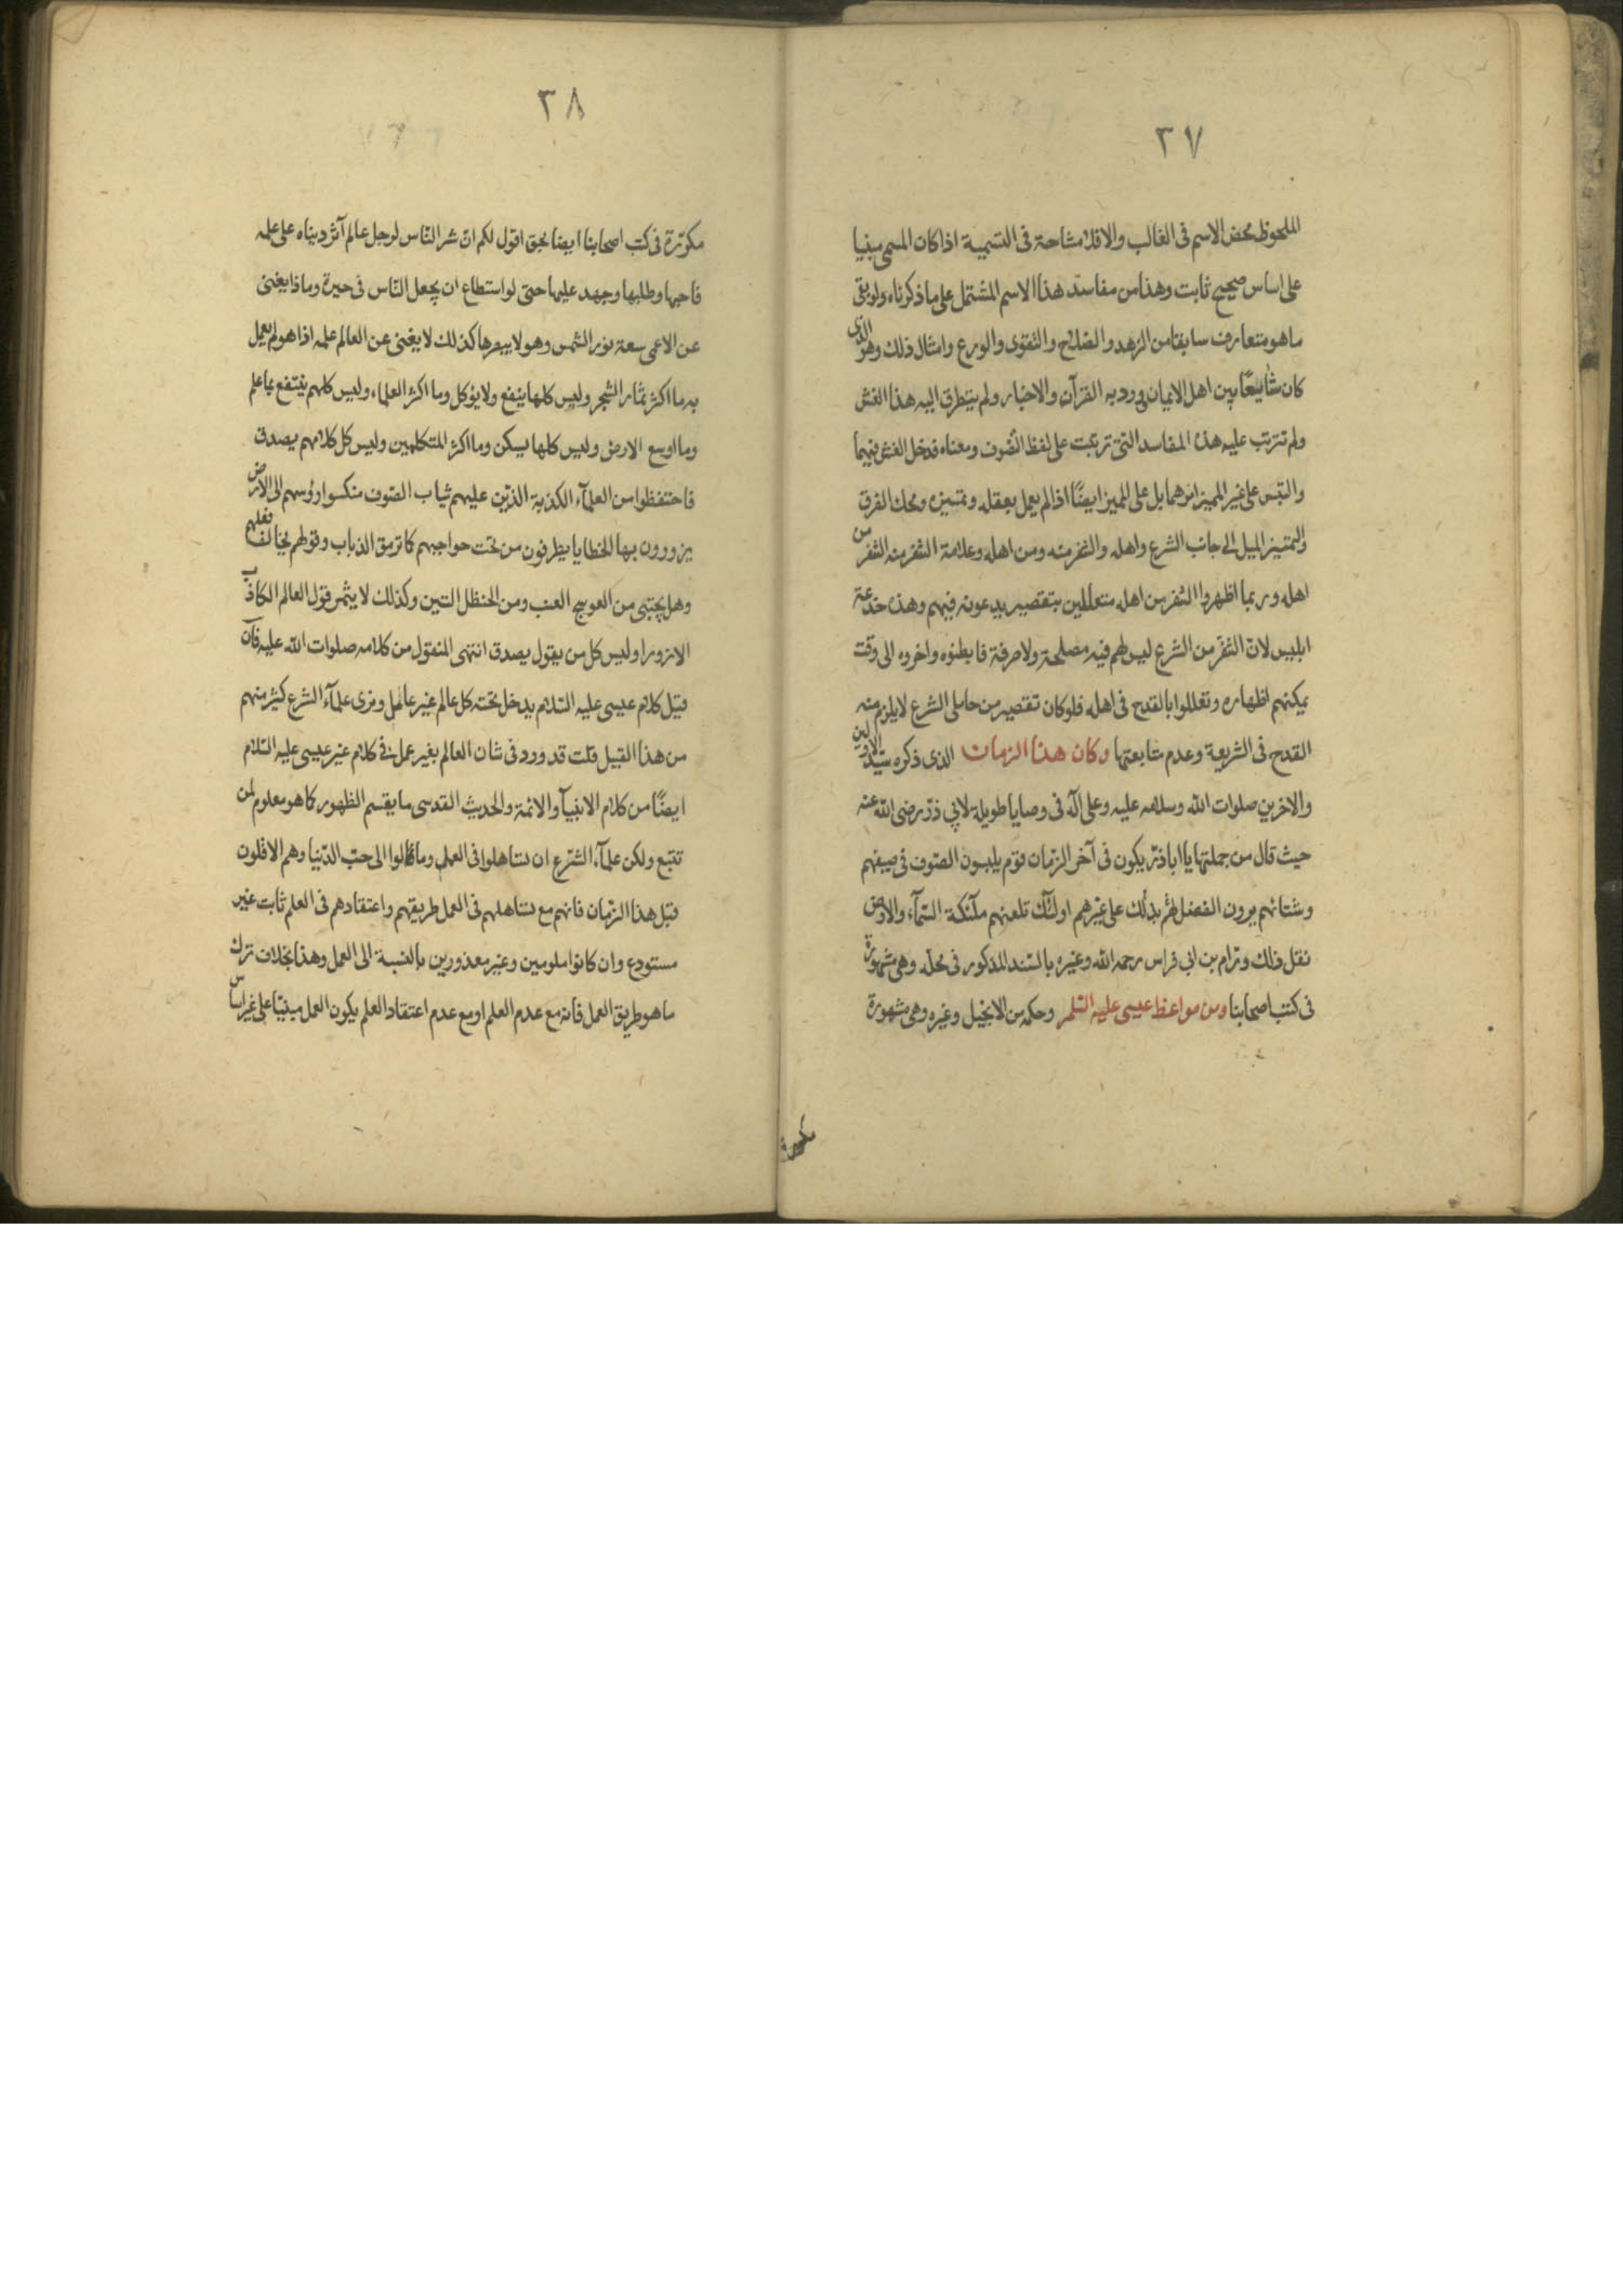 ٣٧
الملحوظ محض الاسم فى الغالب والا فلا مشاحة فى التسمية اذا كان المسمى مبنيا
على اساس صحيح ثابت وهذا من مفاسد هذا الاسم المشتمل على ما ذكرناه ولو بقى
ما هو متعارف سابقا من الزهد والصلاح والتقوى والورع وامثال ذلك وهو الذى
كان شايعًا بين اهل الايمان وورد به القرآن والاخبار ولم يتطرق اليه هذا الغش
ولم تترتب عليه هذه المفاسد التى ترتبت على لفظ التصوف ومعناه فدخل الغش فيهما
والتبس على غير المميز امرهما بل على المميز ايضًا اذا لم يعمل بعقله وتمييزه ومحك الفرق
والتمييز الميل الى جانب الشرع واهله والنفر منه ومن اهله وعلامة النفر منه النفر من
اهله وربما اظهروا النفر من اهله متعللين بتقصير يدعونه فيهم وهذه خدعة
ابليس لان النفر من الشرع ليس لهم فيه مصلحة ولا صرفة فابطنوه واخروه الى وقت
يمكنهم اظهاره وتعللوا بالقدح فى اهله فلو كان تقصير من حاملى الشرع لا يلزم منه
القدح فى الشريعة وعدم متابعتها وكان هذا الزمان الذى ذكره سيد الاولين
والاخرين صلوات الله وسلامه عليه وعلى آله فى وصايا طويلة لابي ذرّ رضى الله عنه
حيث قال من جملتها يا اباذرّ يكون فى آخر الزمان قوم يلبسون الصوف فى صيفهم
وشتائهم يرون الفضل لهم بذلك على غيرهم اولئك تلعنهم ملآئكة السّمآء والارض
نقل ذلك ورّام بن ابى فراس رحمه الله وغيره بالسّند المذكور فى محلّه وهى مشهورة
فى كتب اصحابنا ومن مواعظ عيسى عليه السّلم وحكمه من الانجيل وغيره وهى مشهورة
مكررة
٣٨
مكرّرة فى كتب اصحابنا ايضا بحق اقول لكم انّ شر النّاس لرجل عالم آثر دنياه على علمه
فاحبها وطلبها وجهد عليها حتى لو استطاع ان يجعل النّاس فى حيرة وماذا يغنى
عن الاعمى سعة نور الشمس وهو لا يبصرها كذلك لا يغنى عن العالم علمه اذا هو لم يعمل
به ما اكثر ثمار الشجر وليس كلها ينفع ولا يؤكل وما اكثر العلماء وليس كلهم ينتفع بما علم
وما اوسع الارض وليس كلها يسكن وما اكثر المتكلمين وليس كل كلامهم يصدق
فاحتفظوا من العلمآء الكذبة الذين عليهم ثياب الصّوف منكسوا رؤسهم الى الارض
يزورون بها الخطايا يطرفون من تحت حواجبهم كما ترمق الذياب وقولهم يخالف فعلهم
وهل يجتبى من العوسج العنب ومن الحنظل التين وكذلك لا يثمر قول العالم الكاذب
الا زورا وليس كل من يقول يصدق انتهى المنقول من كلامه صلوات الله عليه فان
قيل كلام عيسى عليه السّلام يدخل تحته كل عالم غير عامل ونرى علمآء الشرع كثير منهم
من هذا القبيل قلت قد ورد فى شان العالم بغير عمل فى كلام غير عيسى عليه السّلام
ايضًا من كلام الانبيآء والائمة والحديث القدسى ما يقسم الظهور كما هو معلوم لمن
تتبّع ولكن علمآء الشّرع ان تساهلوا فى العمل ومالوا الى حبّ الدّنيا وهم الاقلون
قبل هذا الزّمان فانهم مع تساهلهم فى العمل طريقهم واعتقادهم فى العلم ثابت غير
مستودع وان كانوا ملومين وغير معذورين بالنسبة الى العمل وهذا بخلاف ترك
ما هو طريق العمل فانه مع عدم العلم او مع عدم اعتقاد العلم يكون العمل مبنيّا على غير اساس